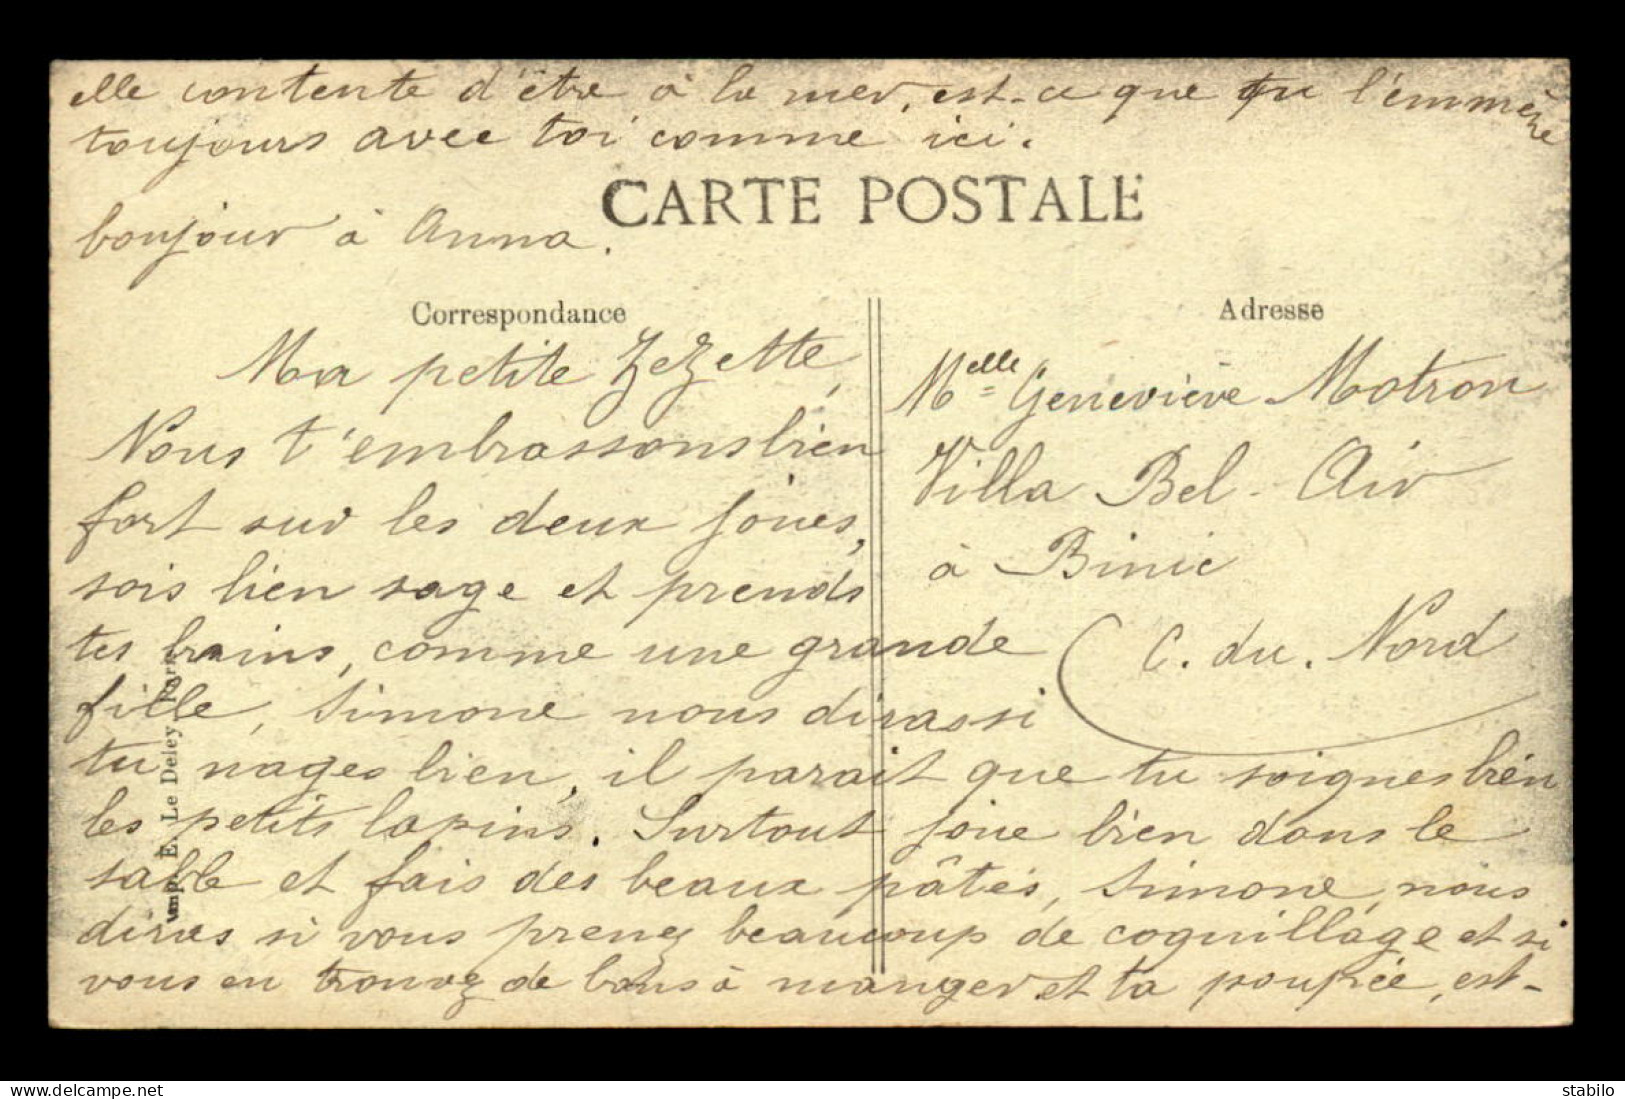 elle contente d'être à la mer, est-ce que tu l'emmène
toujours avec toi comme ici.
bonjour à Anna.
CARTE POSTALE
Correspondance
Ma petite Zezette,
Nous t'embrassons bien
fort sur les deux joues,
sois bien sage et prends
tes bains, comme une grande
fille, Simone nous diras si
tu nages bien, il parait que tu soignes bien
les petits lapins. Surtout joue bien dans le
sable et fais des beaux pâtés, Simone, nous
diras si vous prenez beaucoup de coquillage et si
vous en trouvez de bons à manger. et ta poupée, est-
Adresse
Melle Geneviève Motron
Villa Bel-Air
à Binic
C. du. Nord
Imp. E. Le Deley, Paris
www.delcampe.net
stabilo